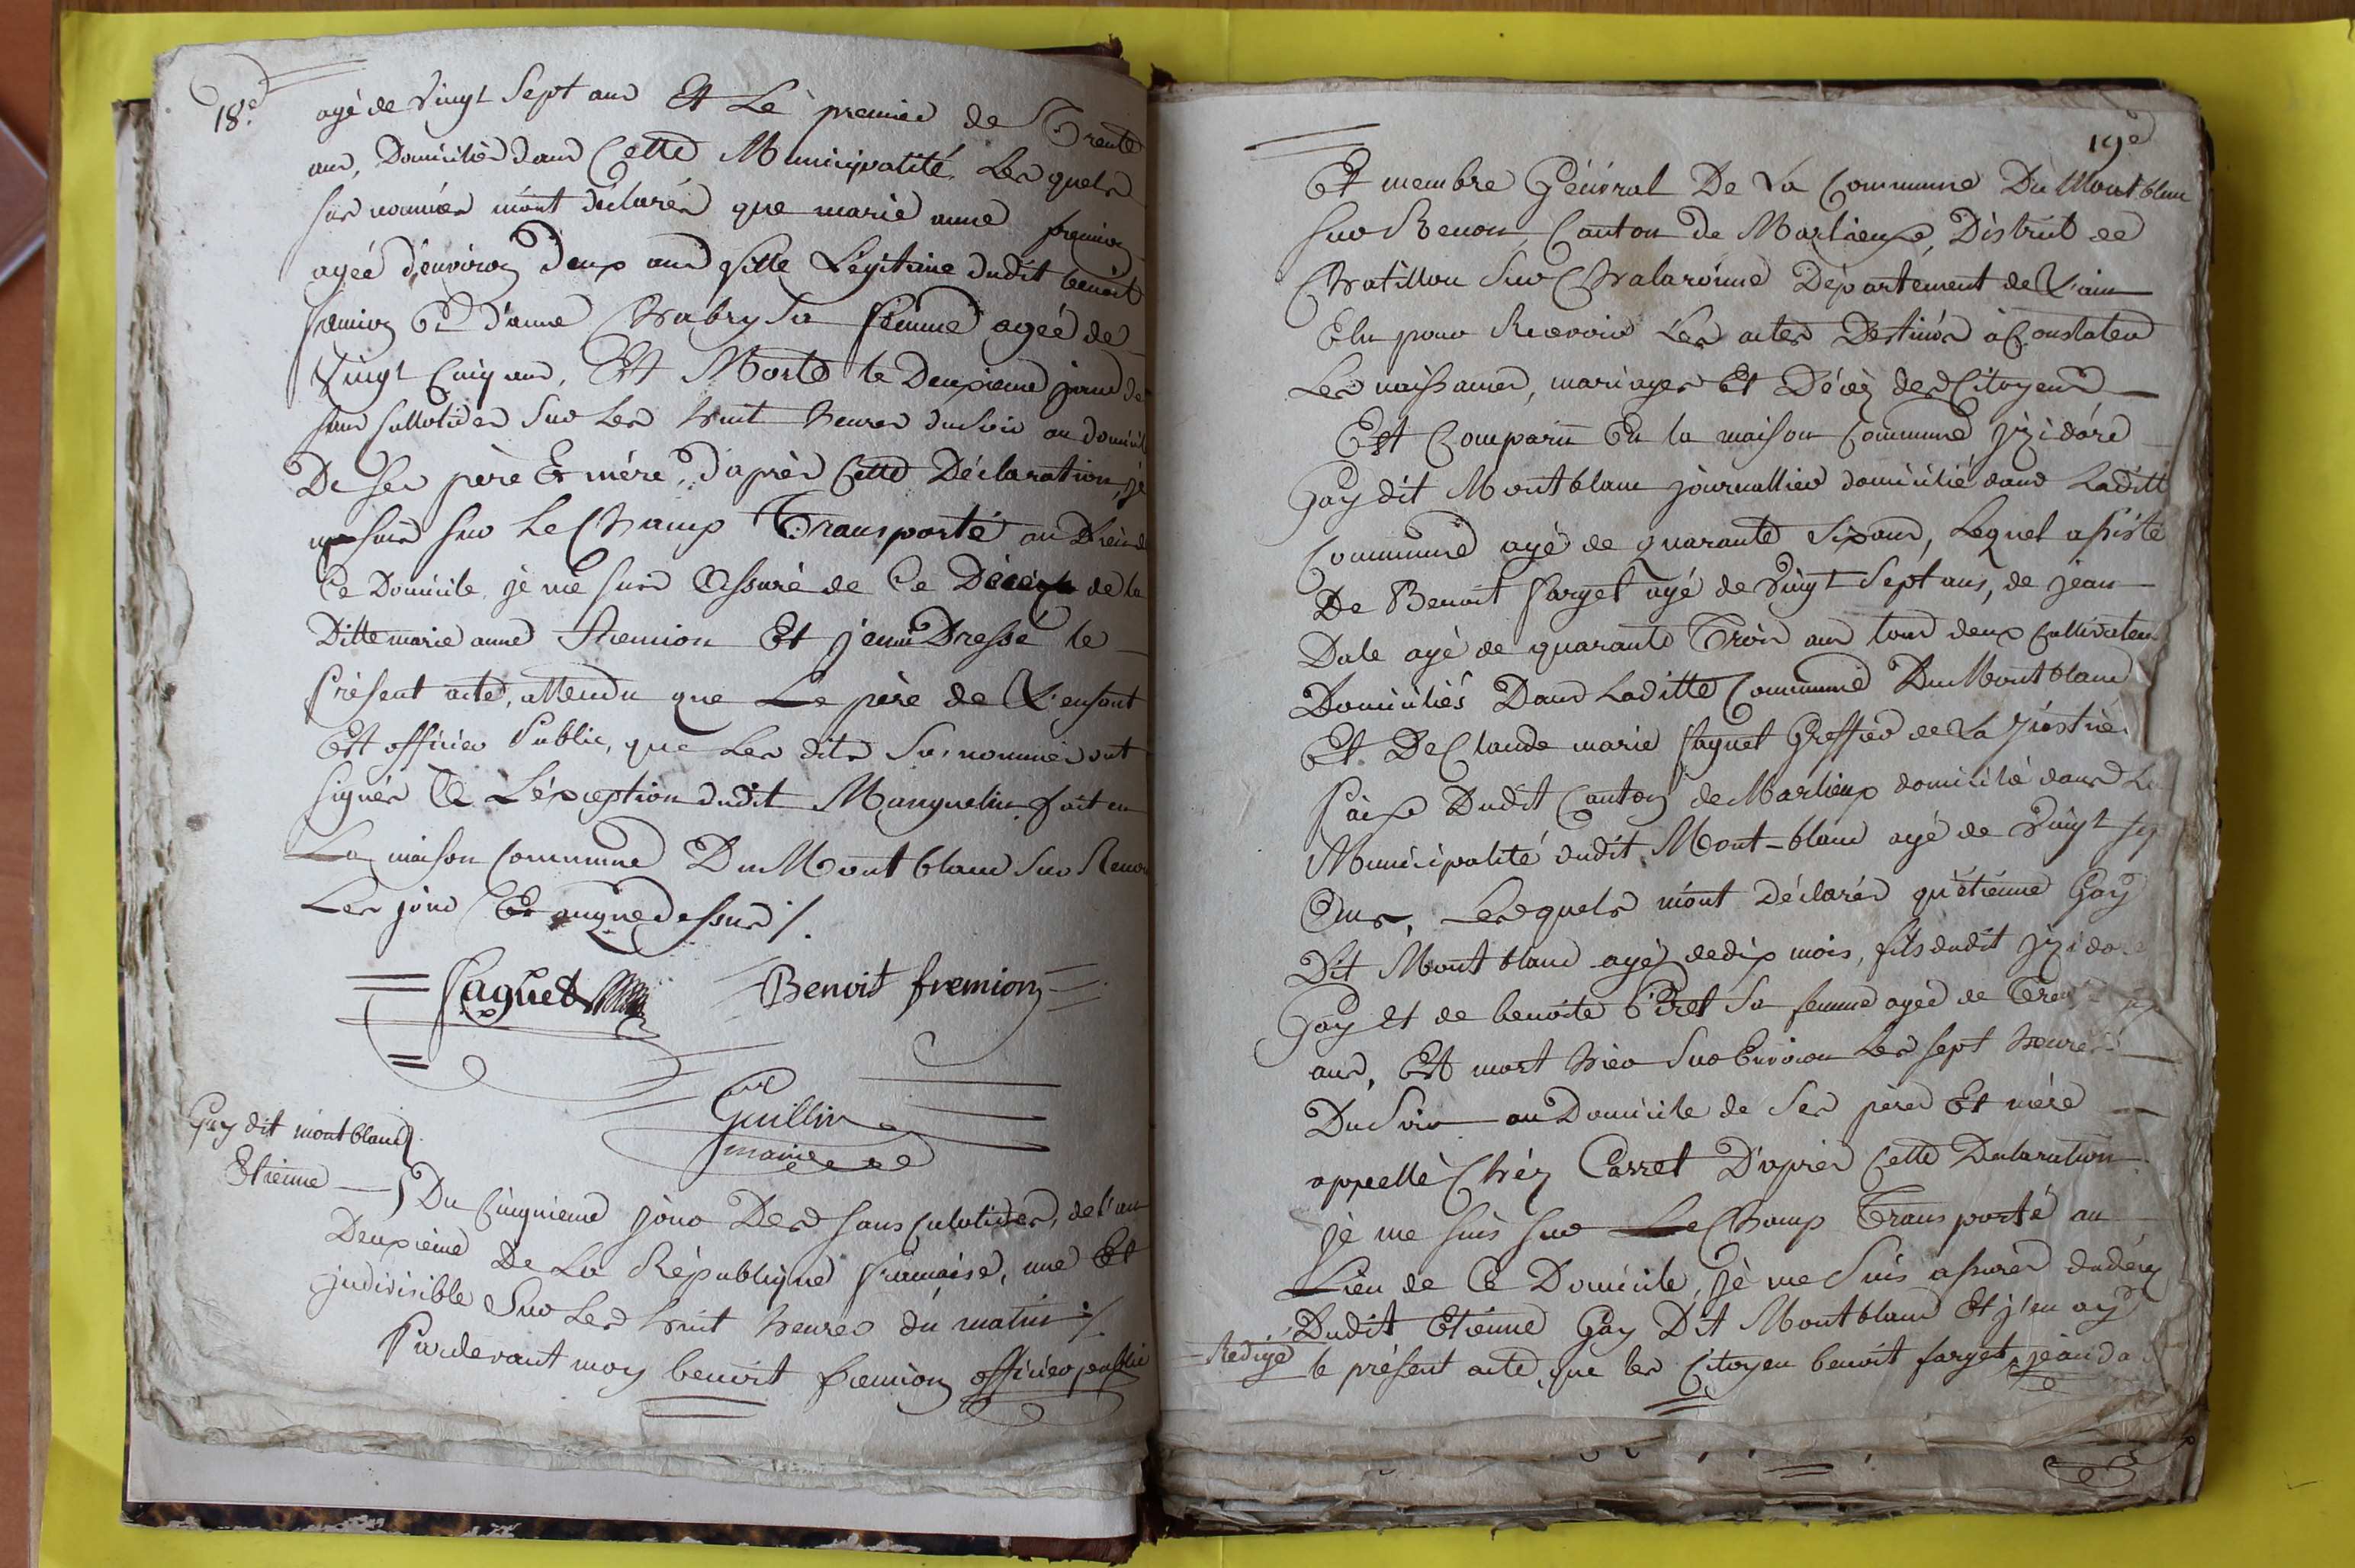 18.e
agé de vingt Sept ans Et Le premier de Trente
ans, Domiciliés dans Cette Municipalité. Les quels
sus nommés m'ont déclarés que marie anne fremion
agée d'environ deux ans fille Légitime dudit benoit
fremion Et d'anne Chabry sa femme agée de
Vingt Cinq ans, Est Morte le Deuxieme jour de
sans culotides Sur Les huit heures du soir au domicile
De ses père Et mére, d'après Cette Déclaration, je
me suis sur Le Champ Transporté au Lieu de
Ce Domicile, je me suis Assuré de Ce Décés de la
Ditte marie anne fremion Et j'en ai Dressé le
Présent acte, attendu que Le père de L'enfant
Est officier Public, que Les dits Sus nommés ont
signés à L'éxception dudit Manguelin, fait en
La maison Commune Du Montblanc sur Renon
Les jour Et an que dessus /.
Faguet Benoit fremion
Guillin
maire
Gay dit montblanc
Etienne
Du Cinquieme jour Des sans culotides, de l'an
Deuxième De La République francaise, une Et
indivisible Sur Les huit heures du matin /.
Pardevant moy benoit fremion officier public
19.e
Et membre Général De La Commune Du Montblanc
sur Renon, Canton de Marlieux, District de
Chatillon Sur Chalaronne Département de L'ain
Elu pour Recevoir Les actes Destinés à Constater
Les naissances, mariages Et Décès des Citoyens
Est Comparu En la maison Commune jzidore
Gay dit Montblanc journallier domicilié dans Laditte
Commune agé de quarante six ans, Lequel assisté
De Benoit farget agé de vingt Sept ans, de jean
Dale agé de quarante Trois ans tous deux Cultivateurs
Domiciliés Dans Laditte Commune Du Montblanc
Et De Claude marie faguet Greffier de La justice
Paix Dudit Canton de Marlieux domicilié dans La
Municipalité dudit Mont-blanc agé de vingt
Ans, Lesquels m'ont Déclarés qu'étiénne Gay
Dit Montblanc agé de dix mois, fils dudit jzidore
Gay et de benoite Péret sa femme agée de
ans, Est mort hier sur Environ Les sept heures
Du Soir au Domicile de Ses péres Et mére
appellé Chéz Carret D'aprés Cette Déclaration
je me suis sur Le Champ Transporté au
Lieu de Ce Domicile, je me Suis assuré du décés
Dudit Etienne Gay Dit Montblanc Et j'en ay
Redigé le présent acte, que les Citoyen benoit farget, jean da